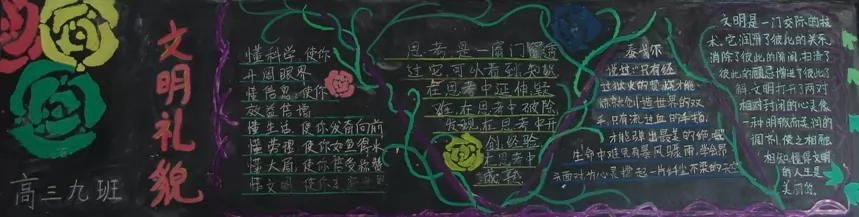 文明礼貌
高三九班
懂科学 使你
开阔眼界
懂信息 使你
效益倍增
懂生活 使你发奋向前
懂劳理 使你如鱼得水
懂大局 使你
懂文明 使你
思考是一扇门
过它可以看到知识
在思考中延伸疑
难 在思考中破除
发现 在思考中开
创 经验
在思考中
成熟
泰戈尔
说过:"只有经
过地狱的磨炼才能
练就创造世界的双
手,只有流过血的手指,
才能弹出最美的
生命中难免有暴风骤雨,学会昂
为心灵撑起一片纤尘不染的天空
文明是一门交际的技
术,它润滑了彼此的关系,
消除了彼此的隔阂,扫清了
彼此的顾忌,增进了彼此了
解 文明打开了两对
相对封闭的心灵像
一种明徹而柔润的
调剂,使之相融
相知,懂得文明
的人生是
美丽的.